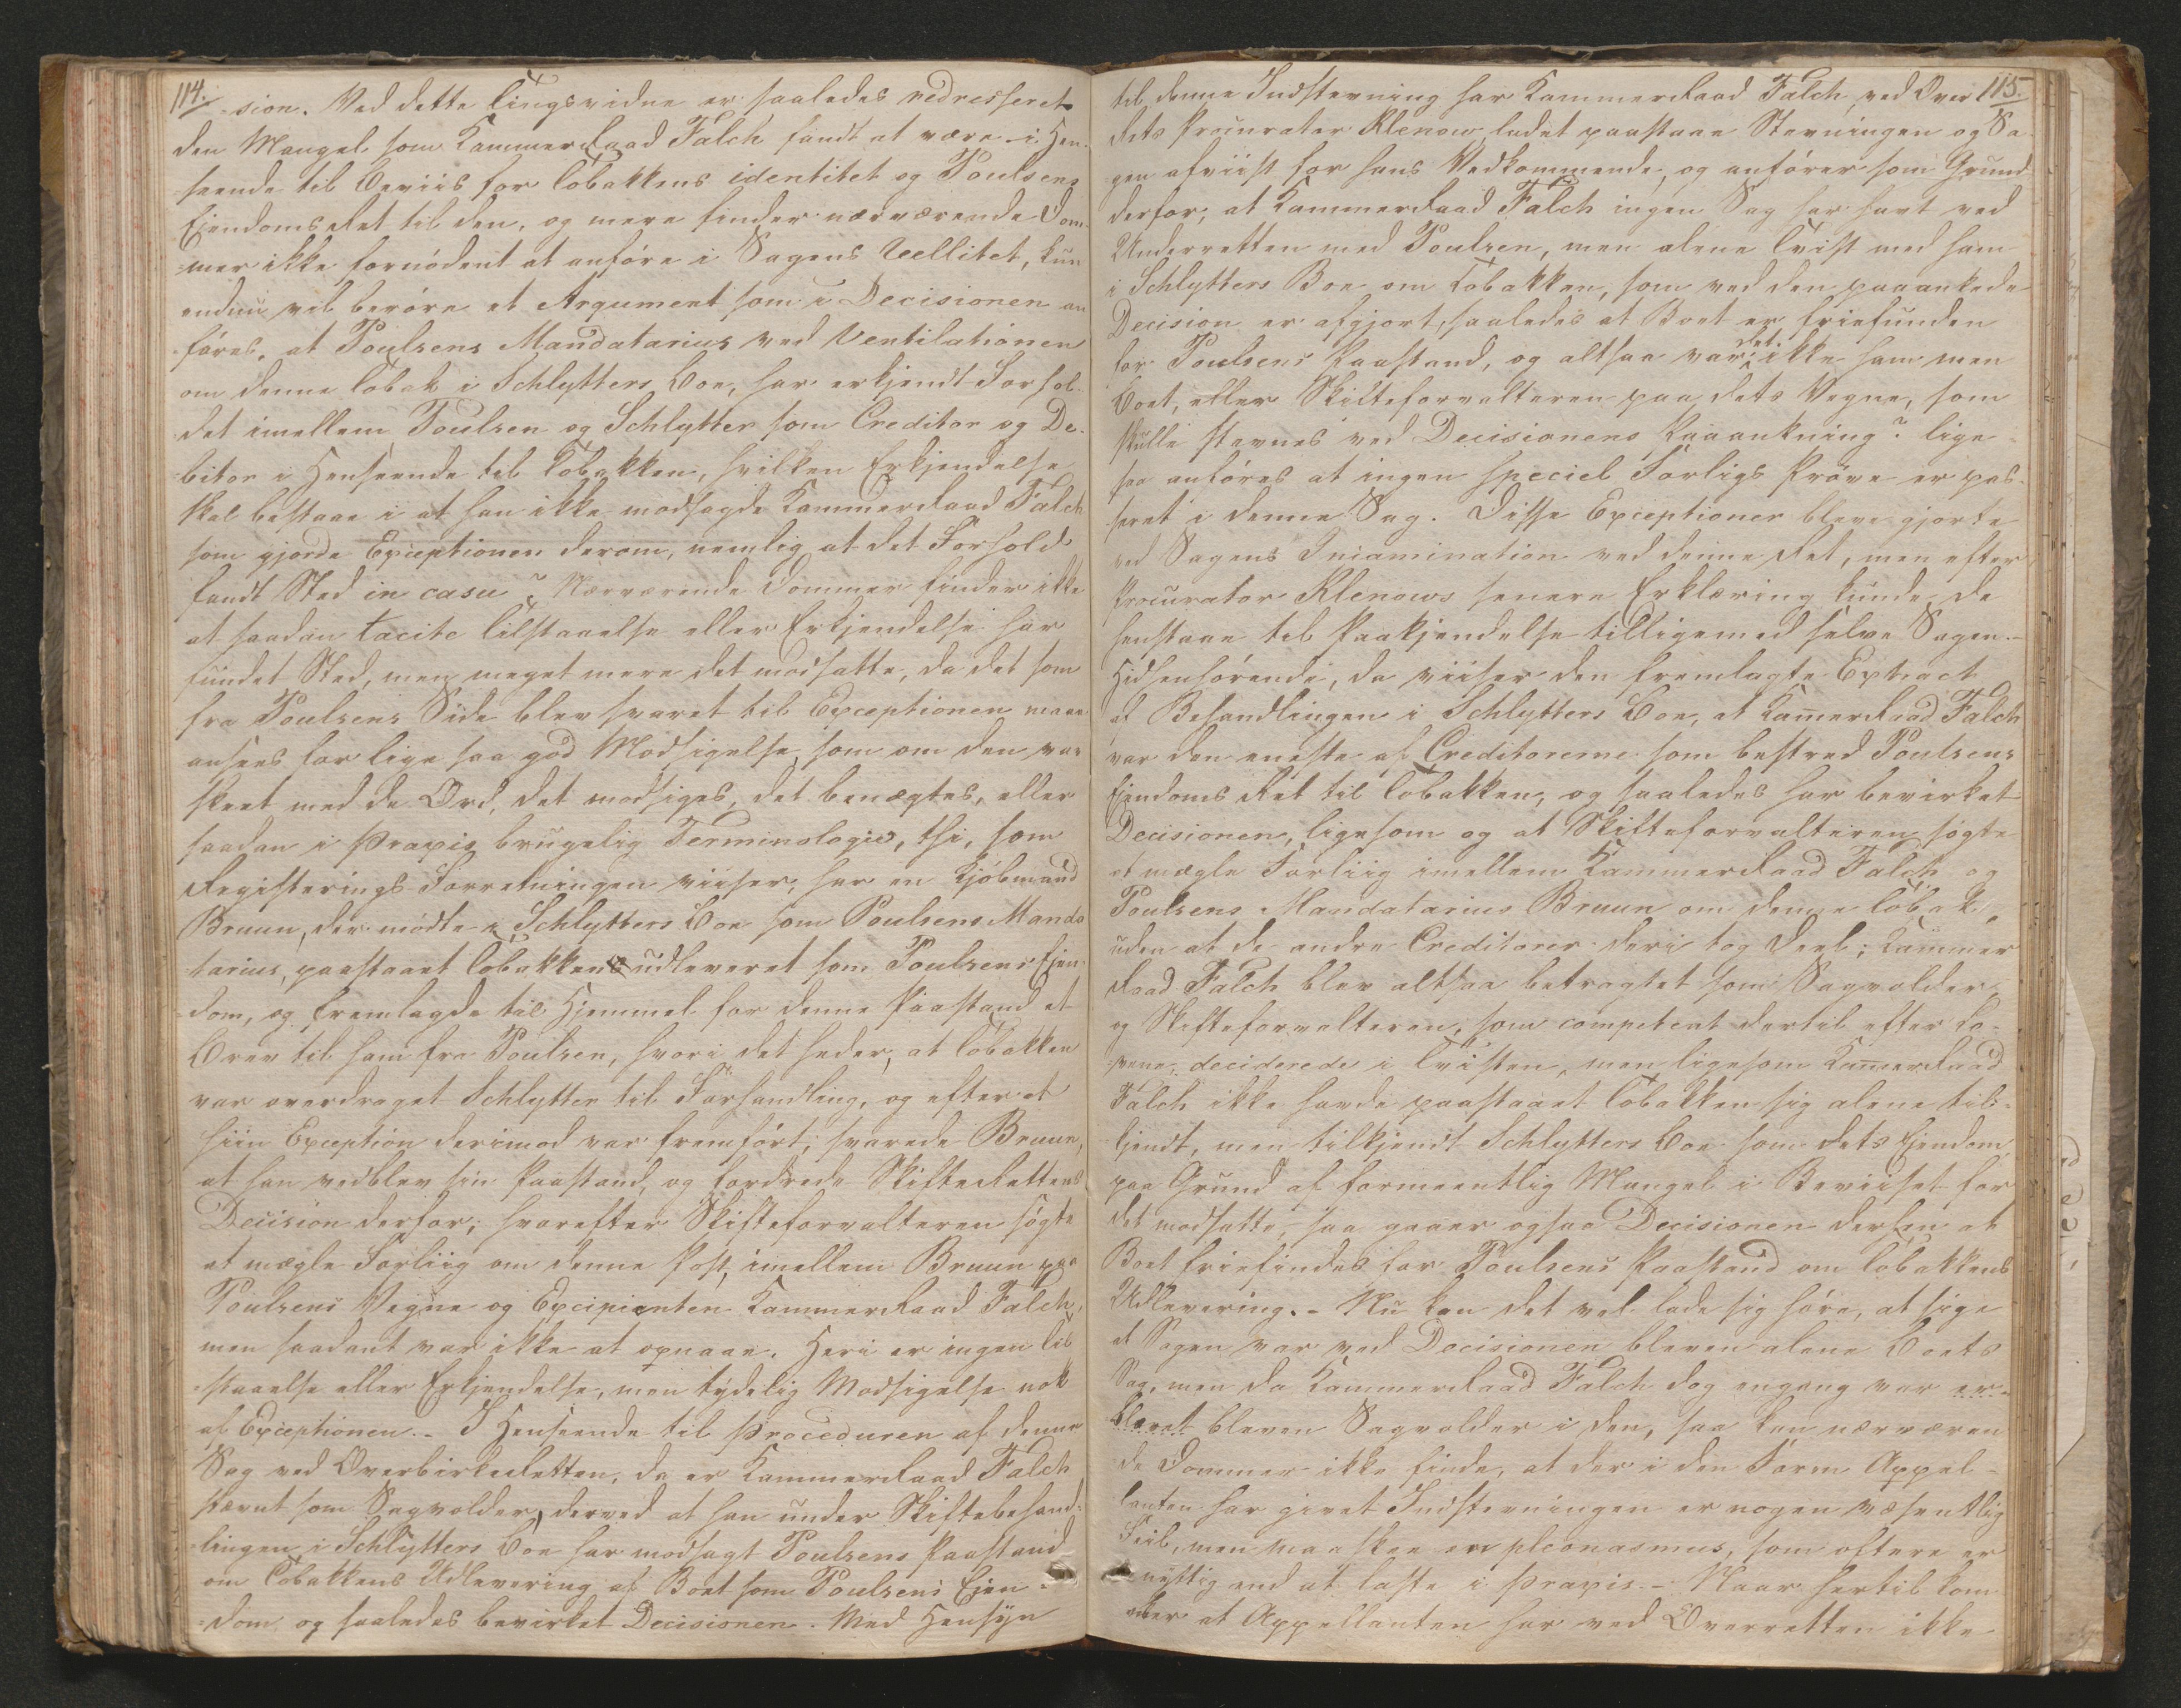 114.
-sion. Ved dette Tingsvidne er saaledes redresseret
den Mangel som KammerRaad Falch fandt at være i Hen-
seende til Beviis for Tobakkens identitet og Poulsens
EiendomsRet til den, og mere finder nærværende Dom-
mer ikke fornödent at anföre i Sagens Vellitet, kun
endnu vil beröre et Argument som i Decisionen an
föres, at Poulsens Mandatarius ved Ventilationen
om denne Tobak i Schlytters Boe, har erkjendt Forhol-
det imellem Poulsen og Schlytter som Creditor og De-
bitor i Henseende til Tobakken, hvilken Erkjendelse
skal bestaae i at han ikke modsagde KammerRaad Falch
som gjorde Exceptionen derom, nemlig at det Forhold
fandt Sted in casu? Nærværende Dommer finder ikke
at saadan tacite Tilstaaelse eller Erkjendelse har
fundet Sted, men meget mere det modsatte, da det som
fra Poulsens Side blev svaret til Exceptionen maae
ansees for lige saa god Modsigelse, som om den var
skeet med de Ord, det modsiges, det benægtes, eller
saadan i Praxis brugelig Terminologie, thi, som
Registerings-Forretningen viiser, har en Kjöbmand
Bruun, der mödte i Schlytters Boe som Poulsens Manda
tarius, paastaaet Tobakken udleveret som Poulsens Eien-
dom, og fremlagde til Hjemmel for denne Paastand et
Brev til ham fra Poulsen, hvori det heder, at Tobakken
var overdraget Schlytter til Forhandling, og efter at
hiin Exception derimod var fremfört, svarede Bruun,
at han vedblev sin Paastand, og fordrede SkifteRettens
Decision derfor; hvorefter Skifteforvalteren sögte
at mægle Forliig om denne Post, imellem Bruun paa
Poulsens Vegne og Excipienten KammerRaad Falch,
men saadant var ikke at opnaae. Heri er ingen Til
staaelse eller Erkjendelse, men tydelig Modsigelse nok
af Exceptionen.- I Henseende til Proceduren af denne
Sag ved OverbirkeRetten, da er KammerRaad Falch
stævnt som Sagvolder, derved at han under Skiftebehand-
lingen i Schlytters Boe har modsagt Poulsens Paastand
om Tobakkens Udlevering af Boet som Poulsens Eien-
dom og saaledes bevirket Decisionen. Med Hensyn
115.
til denne Indstevning har KammerRaad Falch ved Over
Rets Procurator Klenow ladet paastaae Stevningen og Sa
gen afviist for hans Vedkommende, og anförer som Grund
derfor, at KammerRaad Falch ingen Sag har havt ved
Underretten med Poulsen, men alene Tvist med ham
i Schlytters Boe om Tobakken, som ved den paaankede
Decision er afgjort, saaledes at Boet er friefunden
for Poulsens Paastand, og altsaa var det ikke ham men
Boet, eller Skifteforvalteren paa dets Vegne, som
skulle stevnes ved Decisionens Paaankning? lige-
saa anföres at ingen speciel Forligs Pröve er pas-
seret i denne Sag. Disse Exceptioner bleve gjorte
ved Sagens Incamination ved denne Ret, men efter
Procurator Klenows senere Erklæring kunde de
henstaae til Paakjendelse tilligemed selve Sagen.-
Hidhenhörende, da viiser den fremlagte Extract
af Behandlingen i Schlytters Boe, at KamerRaad Falch
var den eneste af Creditorerne som bestred Poulsens
Eiendoms Ret til Tobakken, og saaledes har bevirket
Decisionen, ligesom og at Skifteforvalteren sögte
at mægle Forliig imellem KammerRaad Falch og
Poulsens Mandatarius Bruun om denne Tobak,
uden at de andre Creditorer deri tog Deel; Kammer
Raad Falch blev altsaa betragtet som Sagvolder,
og Skifteforvalteren, som competent dertil efter Lo-
vene, deciderede i Tvisten, men ligesom KamerRaad
Falch ikke havde paastaaet Tobakken sig alene til-
kjendt, men tilkjendt Schlytters Boe som dets Eiendom,
paa Grund af formeentlig Mangel i Beviiset for
det modsatte, saa gaaer ogsaa Decisionen derhen at
Boet friefindes for Poulsens Paastand om Tobakkens
Udlevering.- Nu kan det vel lade sig höre, at sige
at Sagen var ved Decisionen bleven alene Boets
Sag, men da KammerRaad Falch dog engang var er-
klæret bleven Sagvolder i den, saa kan nærværen
de Dommer ikke finde, at der i den Form Appel-
lanten har givet Indstevningen er nogen væsentlig
Feil, men maaskee en pleonasmus, som oftere er
nyttig end at laste i Praxis.- Naar hertil kom
mer at Appellanten har ved Overretten ikke